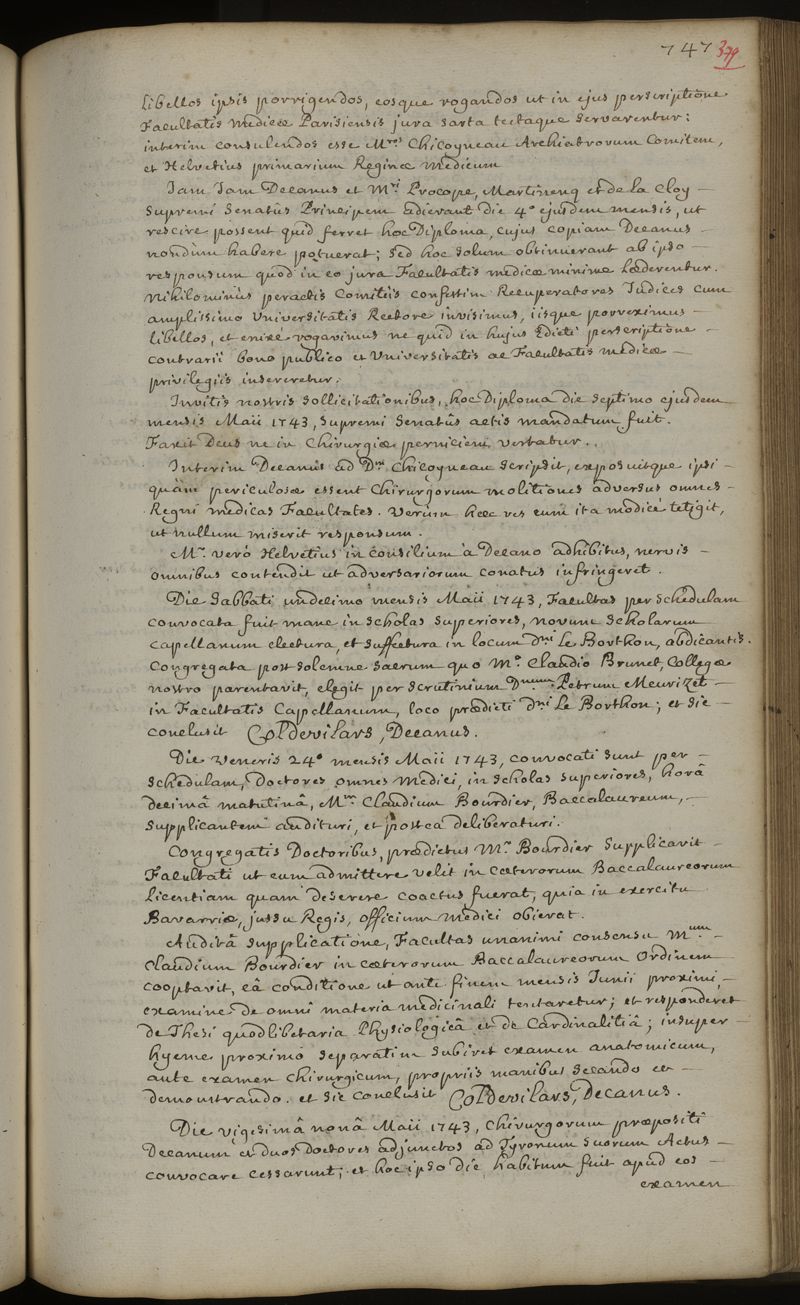 747 379
libellos ipsis porrigendos, eosque rogandos ut in ejus perscriptione
Facultatis medicæ Parisiensis jura sarta tectaque servarentur;
interim consulendos esse M.ros Chicoyneau Archiatrorum Comitem,
et Helvetius primarium Reginæ medicum
Jam Jam Decanus et M.ri Procope, Martinenq et de la Cloy —
Supremi Senatûs Principem adierant die 4.° ejusdem mensis, ut
rescire possent quid ferret hoc Diploma, cujus copiam Decanus —
nondùm habere potuerat; sed hoc solum obtinuerant ab ipso —
responsum quod in eo jura Facultatis medicæ minime læderentur.
Nihilominùs peractis Comitiis confestim Recuperatores Judices cum
amplissimo Universitatis Rectore invisimus, iisque porreximus —
libellos, et enixè rogavimus ne quid in hujus Edicti perscriptione —
contrarii bono publico et Universitatis ac Facultatis medicæ —
privilegiis insereretur.
Invitis nostris sollicitationibus, hoc Diploma die septimo ejusdem
mensis Maii 1743, supremi Senatûs actis mandatum fuit.
Faxit Deus ne in Chirurgiæ perniciem vertatur.
Interim Decanus ad D.um Chicoyneau scripsit, exposuitque ipsi —
quàm periculosæ essent Chirurgorum molitiones adversus omnes —
Regni medicas Facultates. Verùm hæc res eum ita modicè tetigit,
ut nullum miserit responsum.
M.r verò Helvetius in consilium à Decano adhibitus, nervis —
omnibus contendit ut adversariorum conatus infringeret.
Die Sabbati undecimo mensis Maii 1743, Facultas per schedulam
convocata fuit mane in scholas superiores, novum scholarum
capellanum electura, et suffectura in locum D.ni Le Borthon, abdicantis.
Congregata post solemne sacrum quo M.o Claudio Brunet, Collegæ
nostro parentavit, elegit per scrutinium D.num Petrum Meurizet —
in Facultatis Capellanum, loco prædicti D.ni Le Borthon; et sic —
conclusit Col De vilars, Decanus.
Die Veneris 24.° mensis Maii 1743, convocati sunt per —
schedulam, Doctores omnes Medici, in scholas superiores, horâ
decimâ matutinâ, M.um Claudium Bourdier, Baccalaureum, —
supplicantem audituri, et postea deliberaturi.
Congregatis Doctoribus, prædictus M.r Bourdier supplicavit —
Facultati ut eum admittere velit in cæterorum Baccalaureorum
Licentiam quam deserere coactus fuerat, quia in exercitu
Bavarriæ, jussu Regis, officium medici obierat.
Auditâ supplicatione, Facultas unanimi consensu M.um —
Claudium Bourdier in cæterorum Baccalaureorum Ordinem
cooptavit, eâ conditione ut ante finem mensis Junii proximi, —
examine de omni materia medicinali tentaretur; et responderet
de Thesi quodlibetaria Physiologicâ et de Cardinalitiâ; insuper —
hyeme proximo separatim subiret examen anatomicum,
ante examen chirurgicum, propriis manibus secando et —
demonstrando. et sic conclusit Col De vilars, Decanus.
Die vigesimâ nonâ Maii 1743, Chirurgorum præpositi
Decanum et duos Doctores adjunctos ad Tyronum suorum Actus —
convocare cessarunt; et hoc ipso die habitum fuit apud eos —
examen